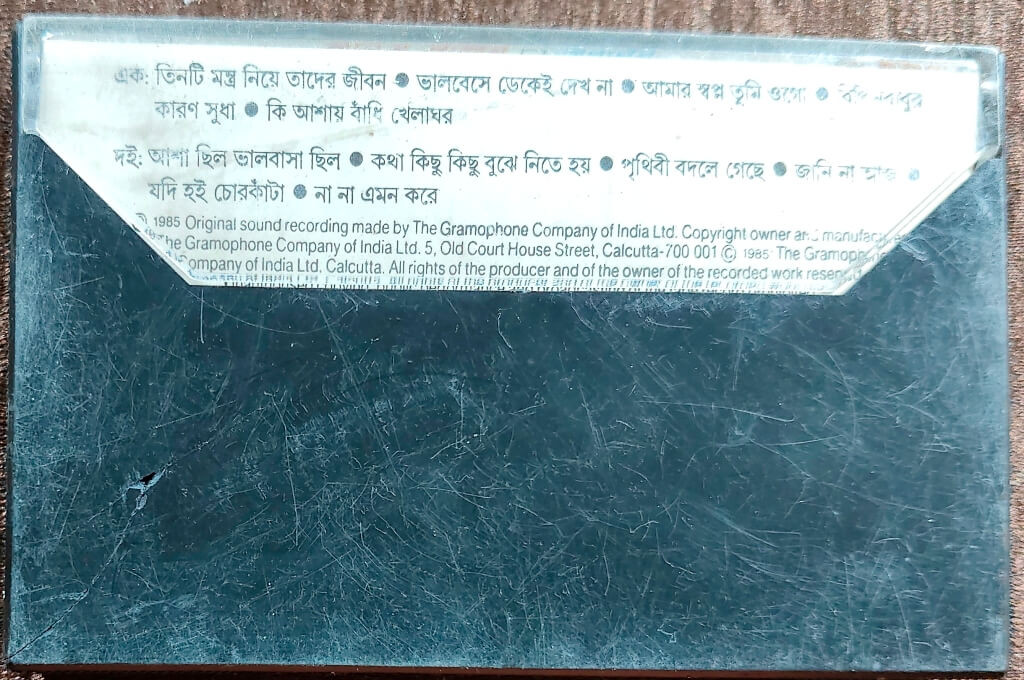 এক: তিনটি মন্ত্র নিয়ে তাদের জীবন ● ভালবেসে ডেকেই দেখ না ● আমার স্বপ্ন তুমি ওগো ●
কারণ সুধা ● কি আশায় বাঁধি খেলাঘর
দুই: আশা ছিল ভালবাসা ছিল ● কথা কিছু কিছু বুঝে নিতে হয় ● পৃথিবী বদলে গেছে ● জানি না আজ ●
যদি হই চোরকাঁটা ● না না এমন করে
℗ 1985 Original sound recording made by The Gramophone Company of India Ltd. Copyright owner and
The Gramophone Company of India Ltd. 5, Old Court House Street, Calcutta-700 001 © 1985 The
Company of India Ltd. Calcutta. All rights of the producer and of the owner of the recorded work